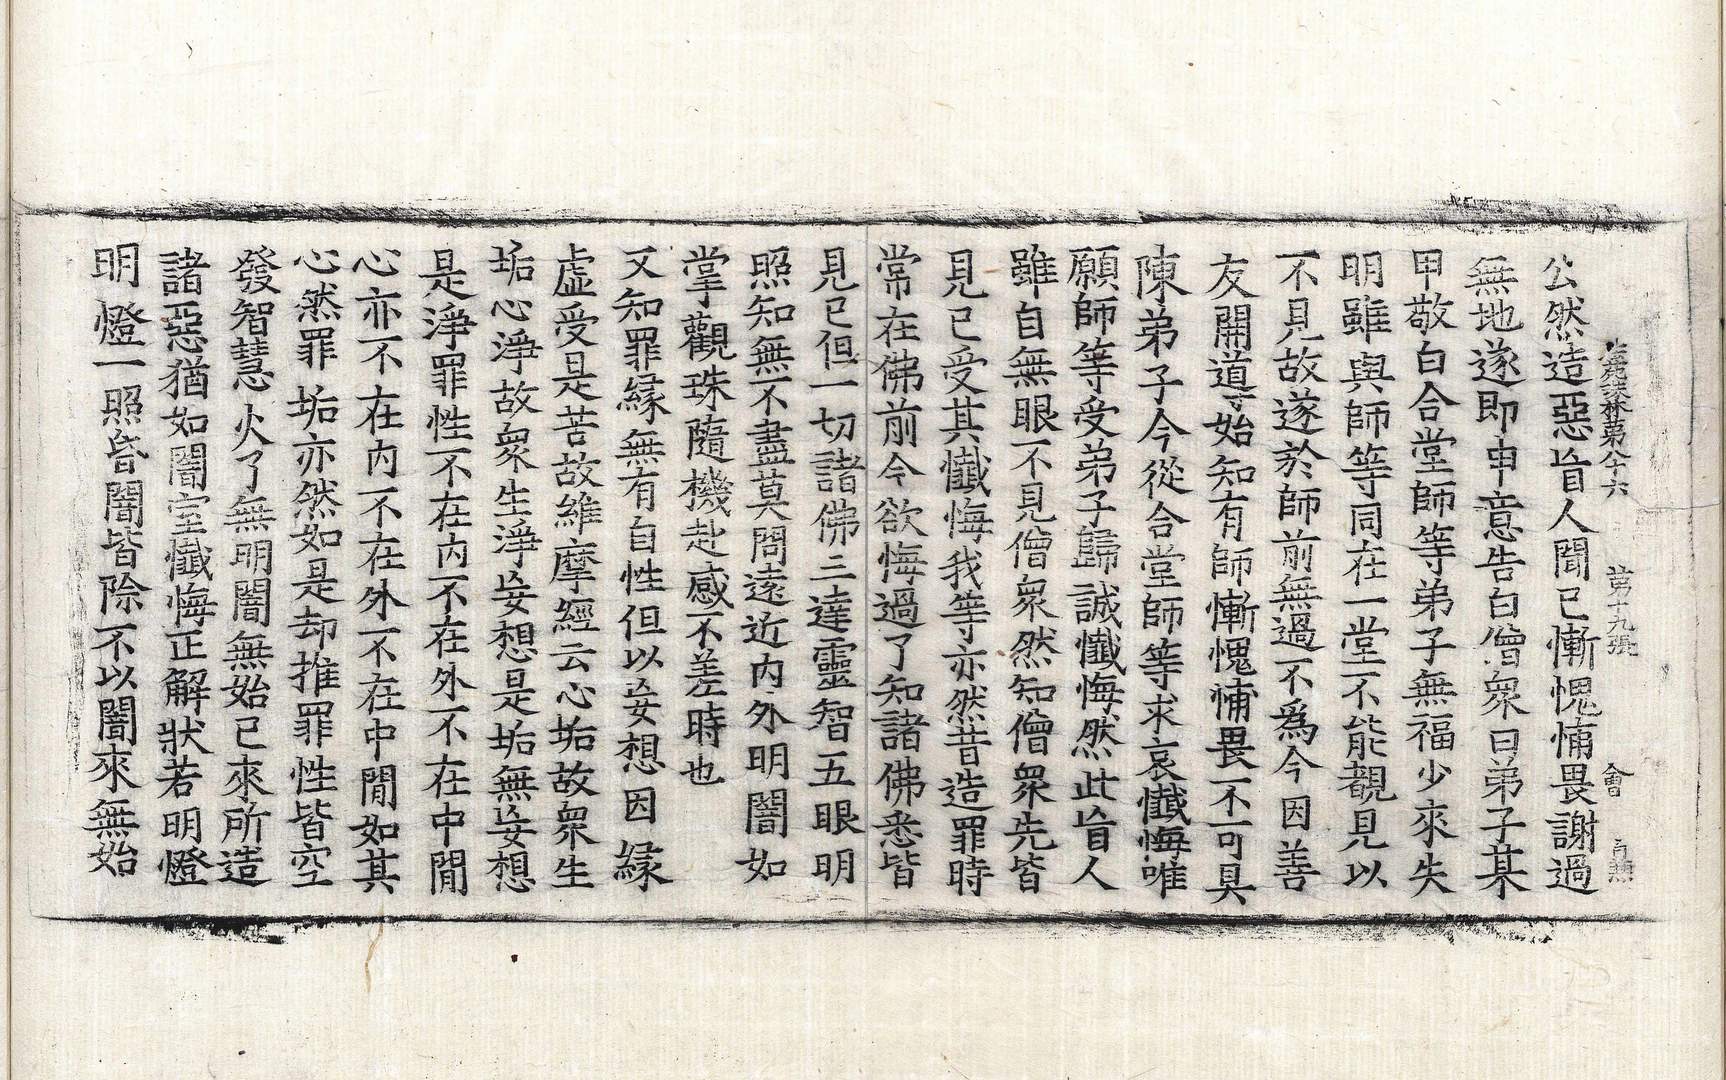 法苑珠林第八十六 第十九張 會
公然造惡盲人聞已慚愧怖畏謝過
無地遂即申意告白僧衆曰弟子某
甲敬白合堂師等弟子無福少來失
明雖與師等同在一堂不能覩見以
不見故遂於師前無過不爲今因善
友開導始知有師慚愧怖畏不可具
陳弟子今從合堂師等求哀懺悔唯
願師等受弟子歸誠懺悔然此盲人
雖自無眼不見僧衆然知僧衆先皆
見已受其懺悔我等亦然昔造罪時
常在佛前今欲悔過了知諸佛悉皆
見已但一切諸佛三達靈智五眼明
照知無不盡莫問遠近內外明闇如
掌觀珠隨機赴感不差時也
又知罪縁無有自性但以妄想因縁
虛受是苦故維摩經云心垢故衆生
垢心淨故衆生淨妄想是垢無妄想
是淨罪性不在內不在外不在中閒
心亦不在內不在外不在中閒如其
心然罪垢亦然如是却推罪性皆空
發智慧火了無明闇無始已來所造
諸惡猶如闇室懺悔正解狀若明燈
明燈一照昏闇皆除不以闇來無始